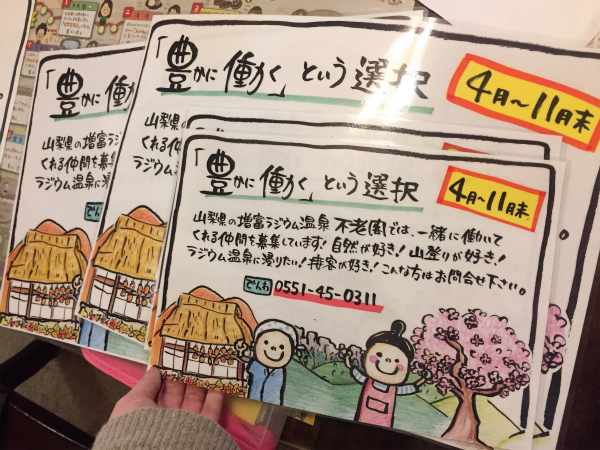 「豊かに働く」という選択
4月～11月末
「豊かに働
山梨県の増富ラジウム
くれる仲間を募集
ラジウム温泉に浸り
でんわ
山梨県
くれる
ラジウ
「豊かに働く」という選択
4月～11月末
山梨県の増富ラジウム温泉 不老閣では、一緒に働いて
くれる仲間を募集しています！自然が好き！山登りが好き！
ラジウム温泉に浸りたい！接客が好き！こんな方はお問合せ下さい。
でんわ 0551-45-0311